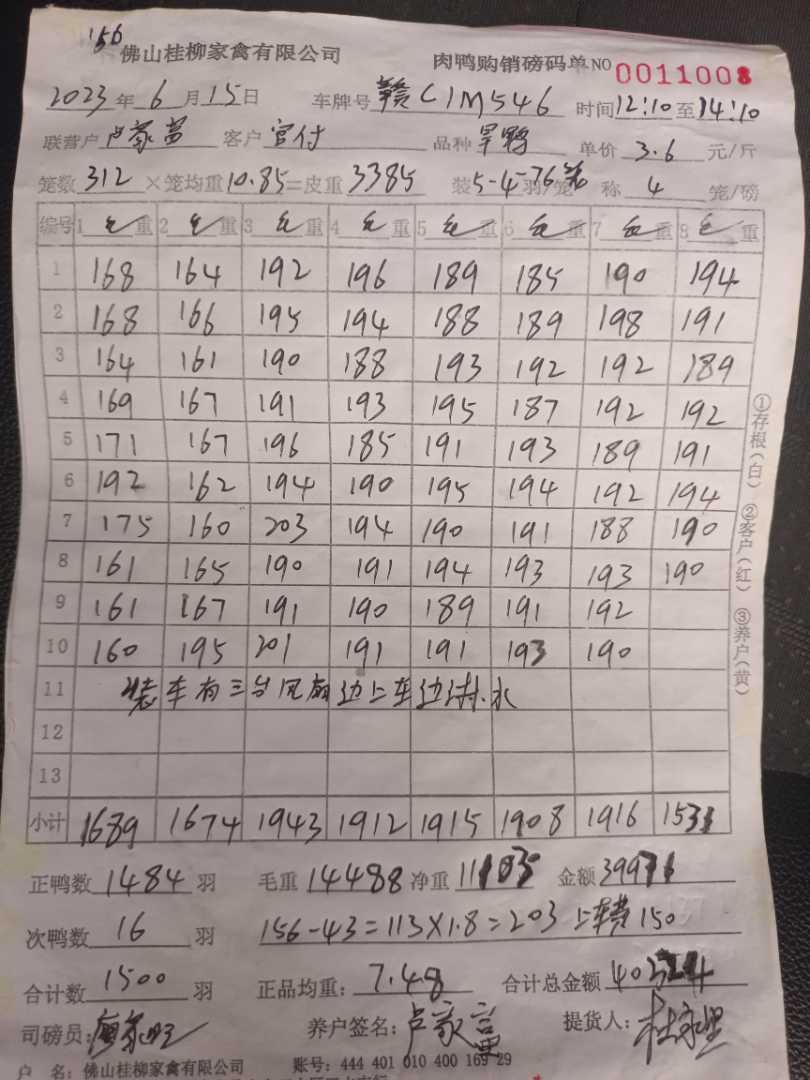 156
佛山桂柳家禽有限公司 肉鸭购销磅码单 NO 0011008
2023年6月15日 车牌号 赣C1M546 时间12:10至14:10
联营户 卢家富 客户 宫付 品种 旱鸭 单价 3.6 元/斤
笼数312×笼均重10.85=皮重3385 装5-4-76笼羽/笼 称 4 笼/磅
编号 1 毛重 2 毛重 3 毛重 4 毛重 5 毛重 6 毛重 7 毛重 8 毛重
1 168 164 192 196 189 185 190 194
2 168 166 195 194 188 189 198 191
3 164 161 190 188 193 192 192 189
4 169 167 191 193 195 187 192 192
5 171 167 196 185 191 193 189 191
6 192 162 194 190 195 194 192 194
7 175 160 203 194 190 191 188 190
8 161 165 190 191 194 193 193 190
9 161 167 191 190 189 191 192
10 160 195 201 191 191 193 190
11 装车有三台风扇边上车边淋水
12
13
小计 1689 1674 1943 1912 1915 1908 1916 1531
正鸭数 1484 羽 毛重 14488 净重 11103 金额 39971
次鸭数 16 羽 156-43=113×1.8=203 上车费150
合计数 1500 羽 正品均重: 7.48 合计总金额 40324
司磅员: 养户签名: 卢家富 提货人:
户 名: 佛山桂柳家禽有限公司 账号: 444 401 010 400 169 29
①存根(白) ②客户(红) ③养户(黄)